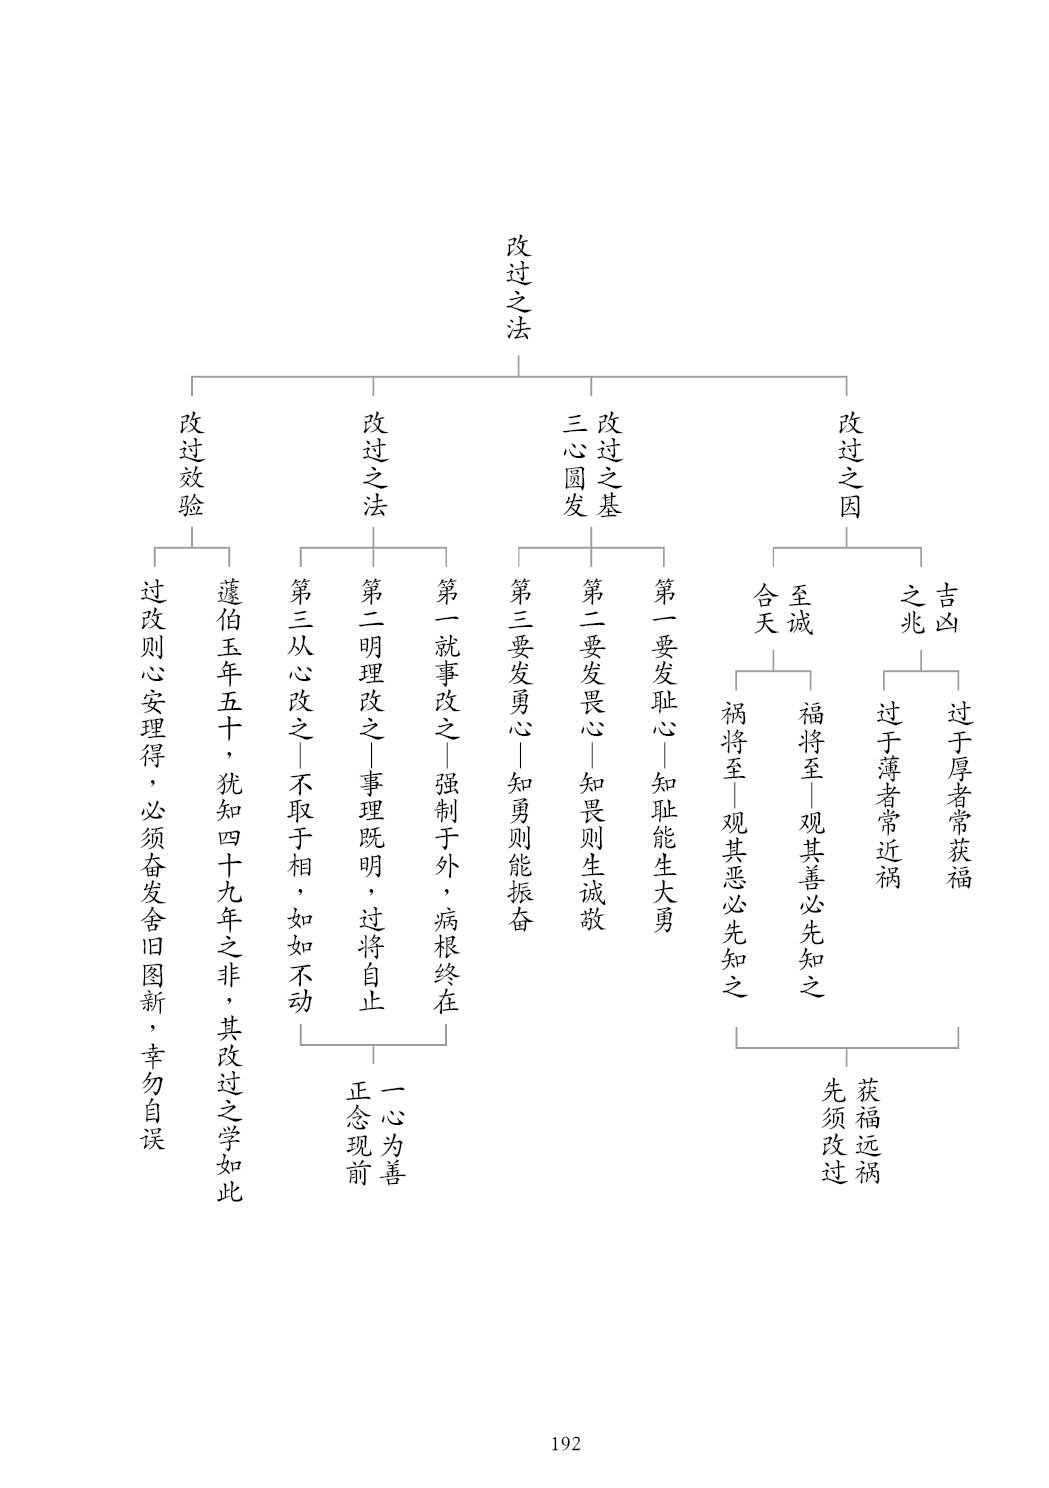 改过之法
改过之因
吉凶
之兆
过于厚者常获福
过于薄者常近祸
至诚
合天
福将至—观其善必先知之
祸将至—观其恶必先知之
获福远祸
先须改过
改过之基
三心圆发
第一要发耻心—知耻能生大勇
第二要发畏心—知畏则生诚敬
第三要发勇心—知勇则能振奋
改过之法
第一就事改之—强制于外，病根终在
第二明理改之—事理既明，过将自止
第三从心改之—不取于相，如如不动
一心为善
正念现前
改过效验
蘧伯玉年五十，犹知四十九年之非，其改过之学如此
过改则心安理得，必须奋发舍旧图新，幸勿自误
192